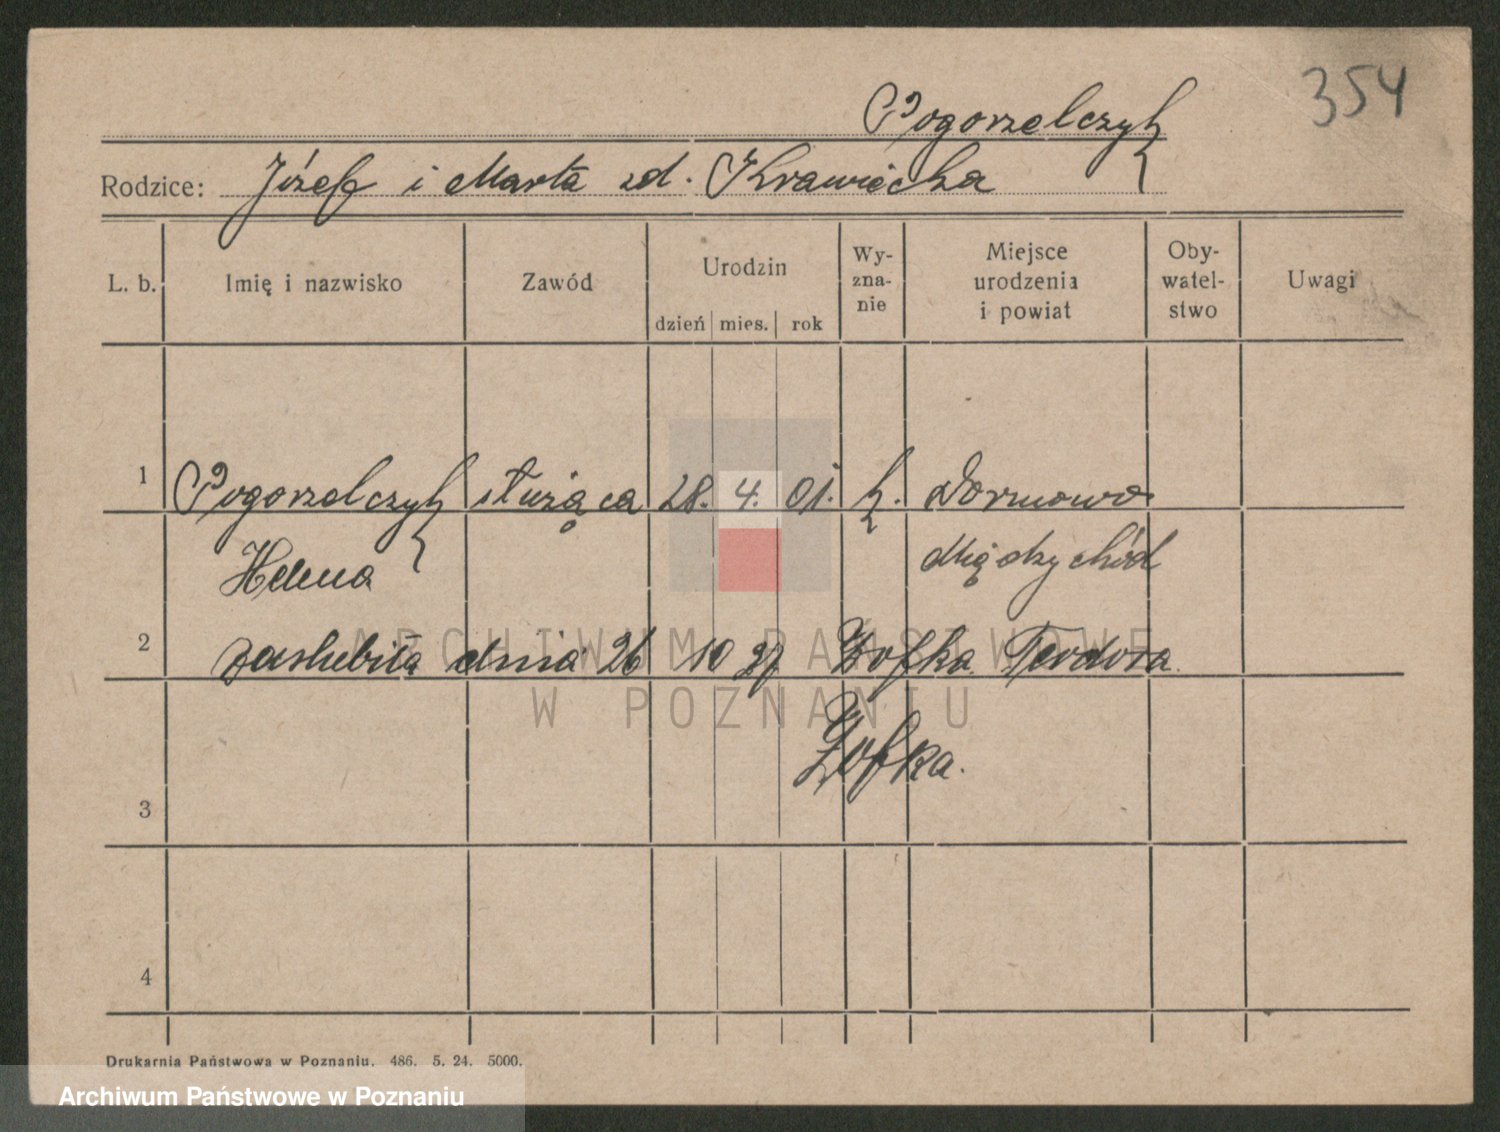 354
Pogorzelczyk
Rodzice: Józef i Marta zd. Krawiecka
L. b. Imię i nazwisko Zawód Urodzin dzień mies. rok Wy-zna-nie Miejsce urodzenia i powiat Oby-watel-stwo Uwagi
1 Pogorzelczyk służąca 28. 4. 01. k. Dormowo
Helena Międzychód
2 zaślubiła dnia 26 10 27 Zofka Teodora
Zofka.
3
4
Drukarnia Państwowa w Poznaniu. 486. 5. 24. 5000.
ARCHIWUM PAŃSTWOWE
W POZNANIU
Archiwum Państwowe w Poznaniu